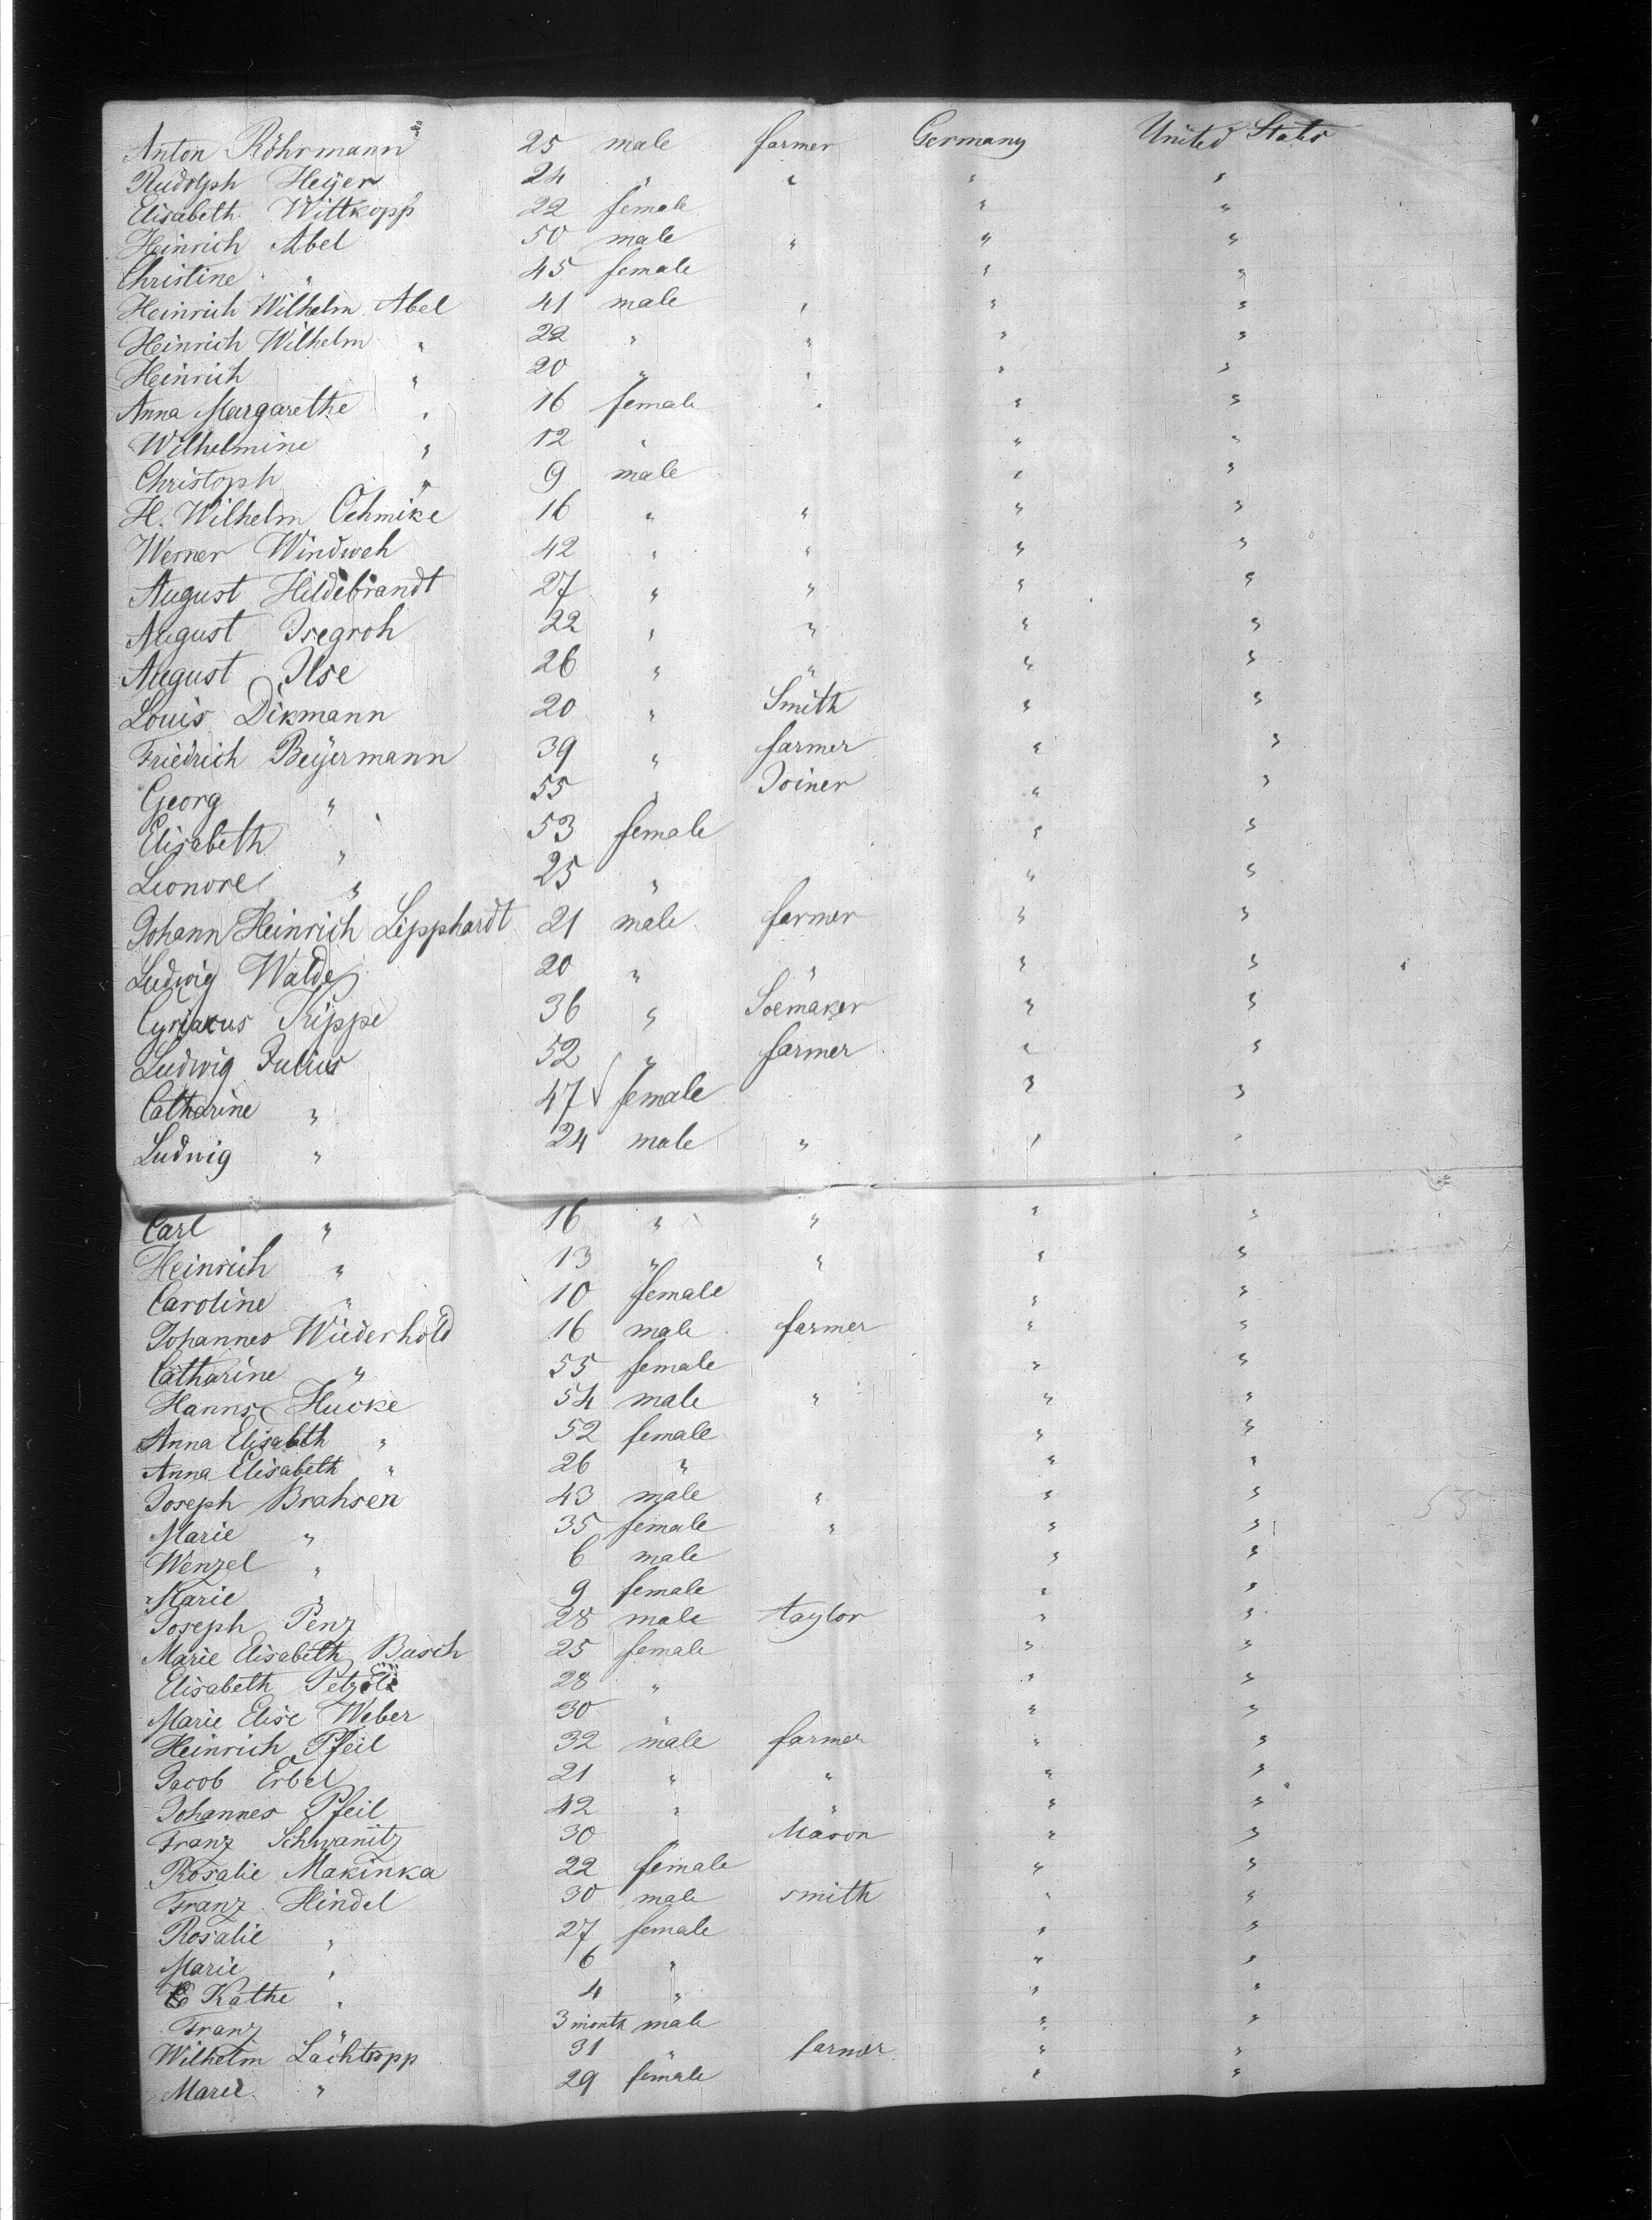 Anton Röhrmann 25 male farmer Germany United States
Rudolph Heÿer 24 " " " "
Elisabeth Wittkopp 22 female " "
Heinrich Abel 50 male " " "
Christine " 45 female " "
Heinrich Wilhelm Abel 41 male " " "
Heinrich Wilhelm " 22 " " " "
Heinrich " 20 " " " "
Anna Margarethe " 16 female " " "
Wilhelmine " 12 " " "
Christoph " 9 male " "
H. Wilhelm Oehmike 16 " " " "
Werner Windweh 42 " " " "
August Hildebrandt 27 " " " "
August Isegroh 22 " " " "
August Ilse 26 " " " "
Louis Dikmann 20 " Smith " "
Friedrich Beÿermann 39 " farmer " "
Georg " 55 " Joiner " "
Elisabeth " 53 female " "
Leonore " 25 " " "
Johann Heinrich Lipphardt 21 male farmer " "
Ludwig Walde 20 " " " "
Cyriakus Kippe 36 " Soemaker " "
Ludwig Julius 52 " farmer " "
Catharine " 47 female " "
Ludwig " 24 male " " "
Carl " 16 " " " "
Heinrich " 13 " " " "
Caroline " 10 female " "
Johannes Wiederhold 16 male farmer " "
Catharine " 55 female " "
Hanns Hucke 54 male " " "
Anna Elisabeth " 52 female " "
Anna Elisabeth " 26 " " "
Joseph Brahsen 43 male " " "
Marie " 35 female " " "
Wenzel " 6 male " "
Marie " 9 female " "
Joseph Penz 28 male taylor " "
Marie Elisabeth Busch 25 female " "
Elisabeth 28 " " "
Marie Elise Weber 30 " " "
Heinrich Pfeil 32 male farmer " "
Jacob Erbel 21 " " " "
Johannes Pfeil 42 " " " "
Franz Schwanitz 30 " Mason " "
Rosalie Makinka 22 female " "
Franz Hindel 30 male smith " "
Rosalie " 27 female " "
Marie " 6 " " "
Kathe " 4 " " "
Franz " 3 month male " "
Wilhelm Lächtopp 31 " farmer " "
Marie " 29 female " "
55